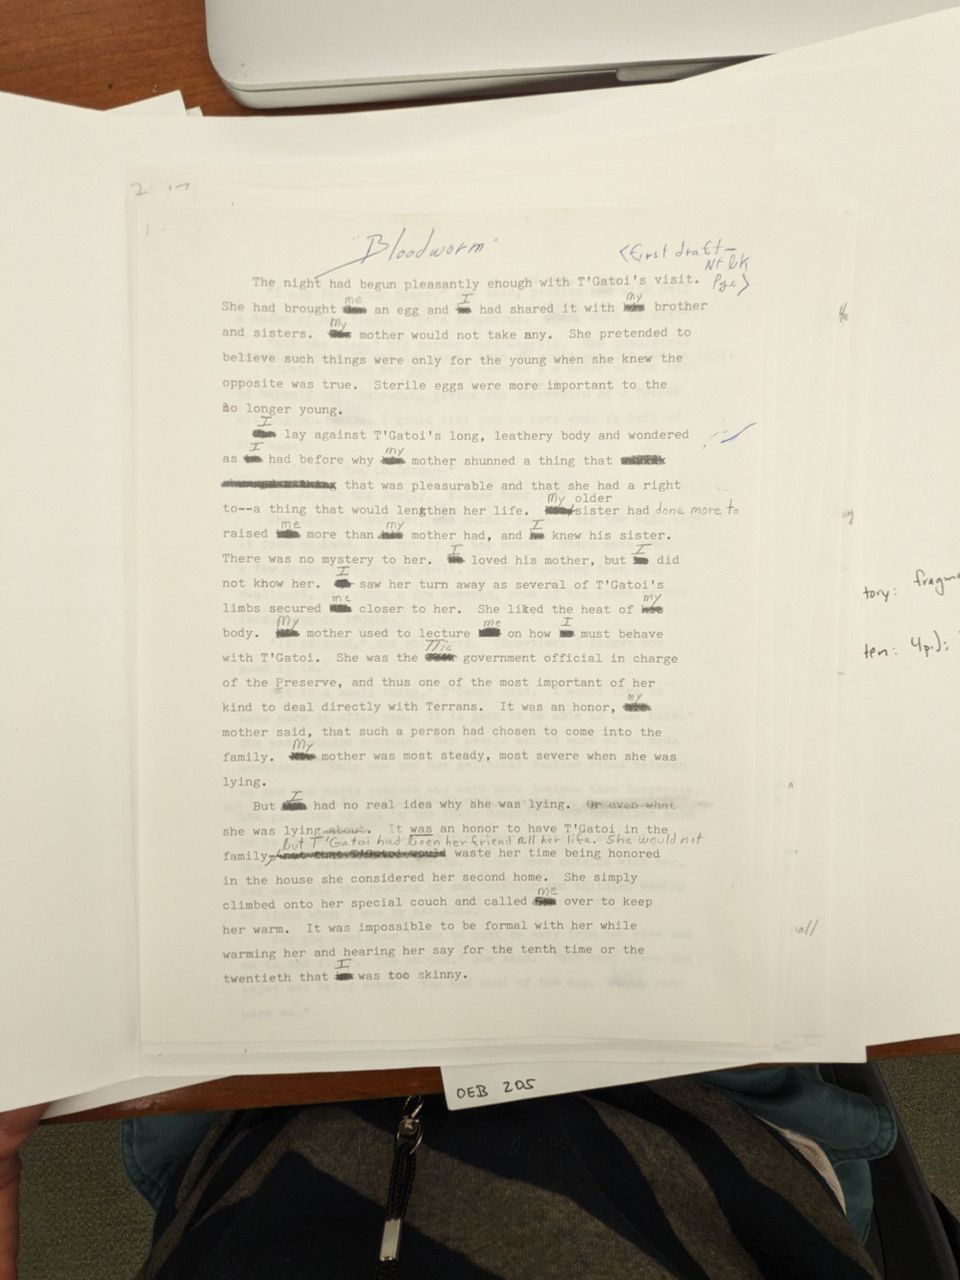 "Bloodworm"
<first draft—
Nt bk
Pgs.>
The night had begun pleasantly enough with T'Gatoi's visit.
She had brought me an egg and I had shared it with my brother
and sisters. My mother would not take any. She pretended to
believe such things were only for the young when she knew the
opposite was true. Sterile eggs were more important to the
no longer young.
I lay against T'Gatoi's long, leathery body and wondered
as I had before why my mother shunned a thing that
that was pleasurable and that she had a right
to--a thing that would lengthen her life. My older sister had done more to
raised me more than my mother had, and I knew his sister.
There was no mystery to her. I loved his mother, but I did
not know her. I saw her turn away as several of T'Gatoi's
limbs secured me closer to her. She liked the heat of my
body. My mother used to lecture me on how I must behave
with T'Gatoi. She was the Tlic government official in charge
of the Preserve, and thus one of the most important of her
kind to deal directly with Terrans. It was an honor, my
mother said, that such a person had chosen to come into the
family. My mother was most steady, most severe when she was
lying.
But I had no real idea why she was lying. Or even what
she was lying about. It was an honor to have T'Gatoi in the
but T'Gatoi had been her friend all her life. She would not
family not that T'Gatoi would waste her time being honored
in the house she considered her second home. She simply
climbed onto her special couch and called me over to keep
her warm. It was impossible to be formal with her while
warming her and hearing her say for the tenth time or the
twentieth that I was too skinny.
warm me."
tory:
ten: 4p.):
OEB 205